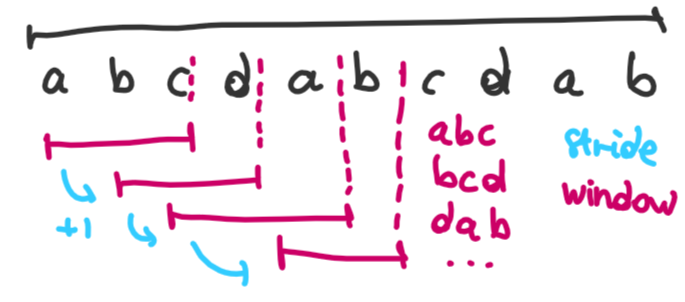 a b c d a b c d a b
abc
bcd
dab
...
stride
window
+1